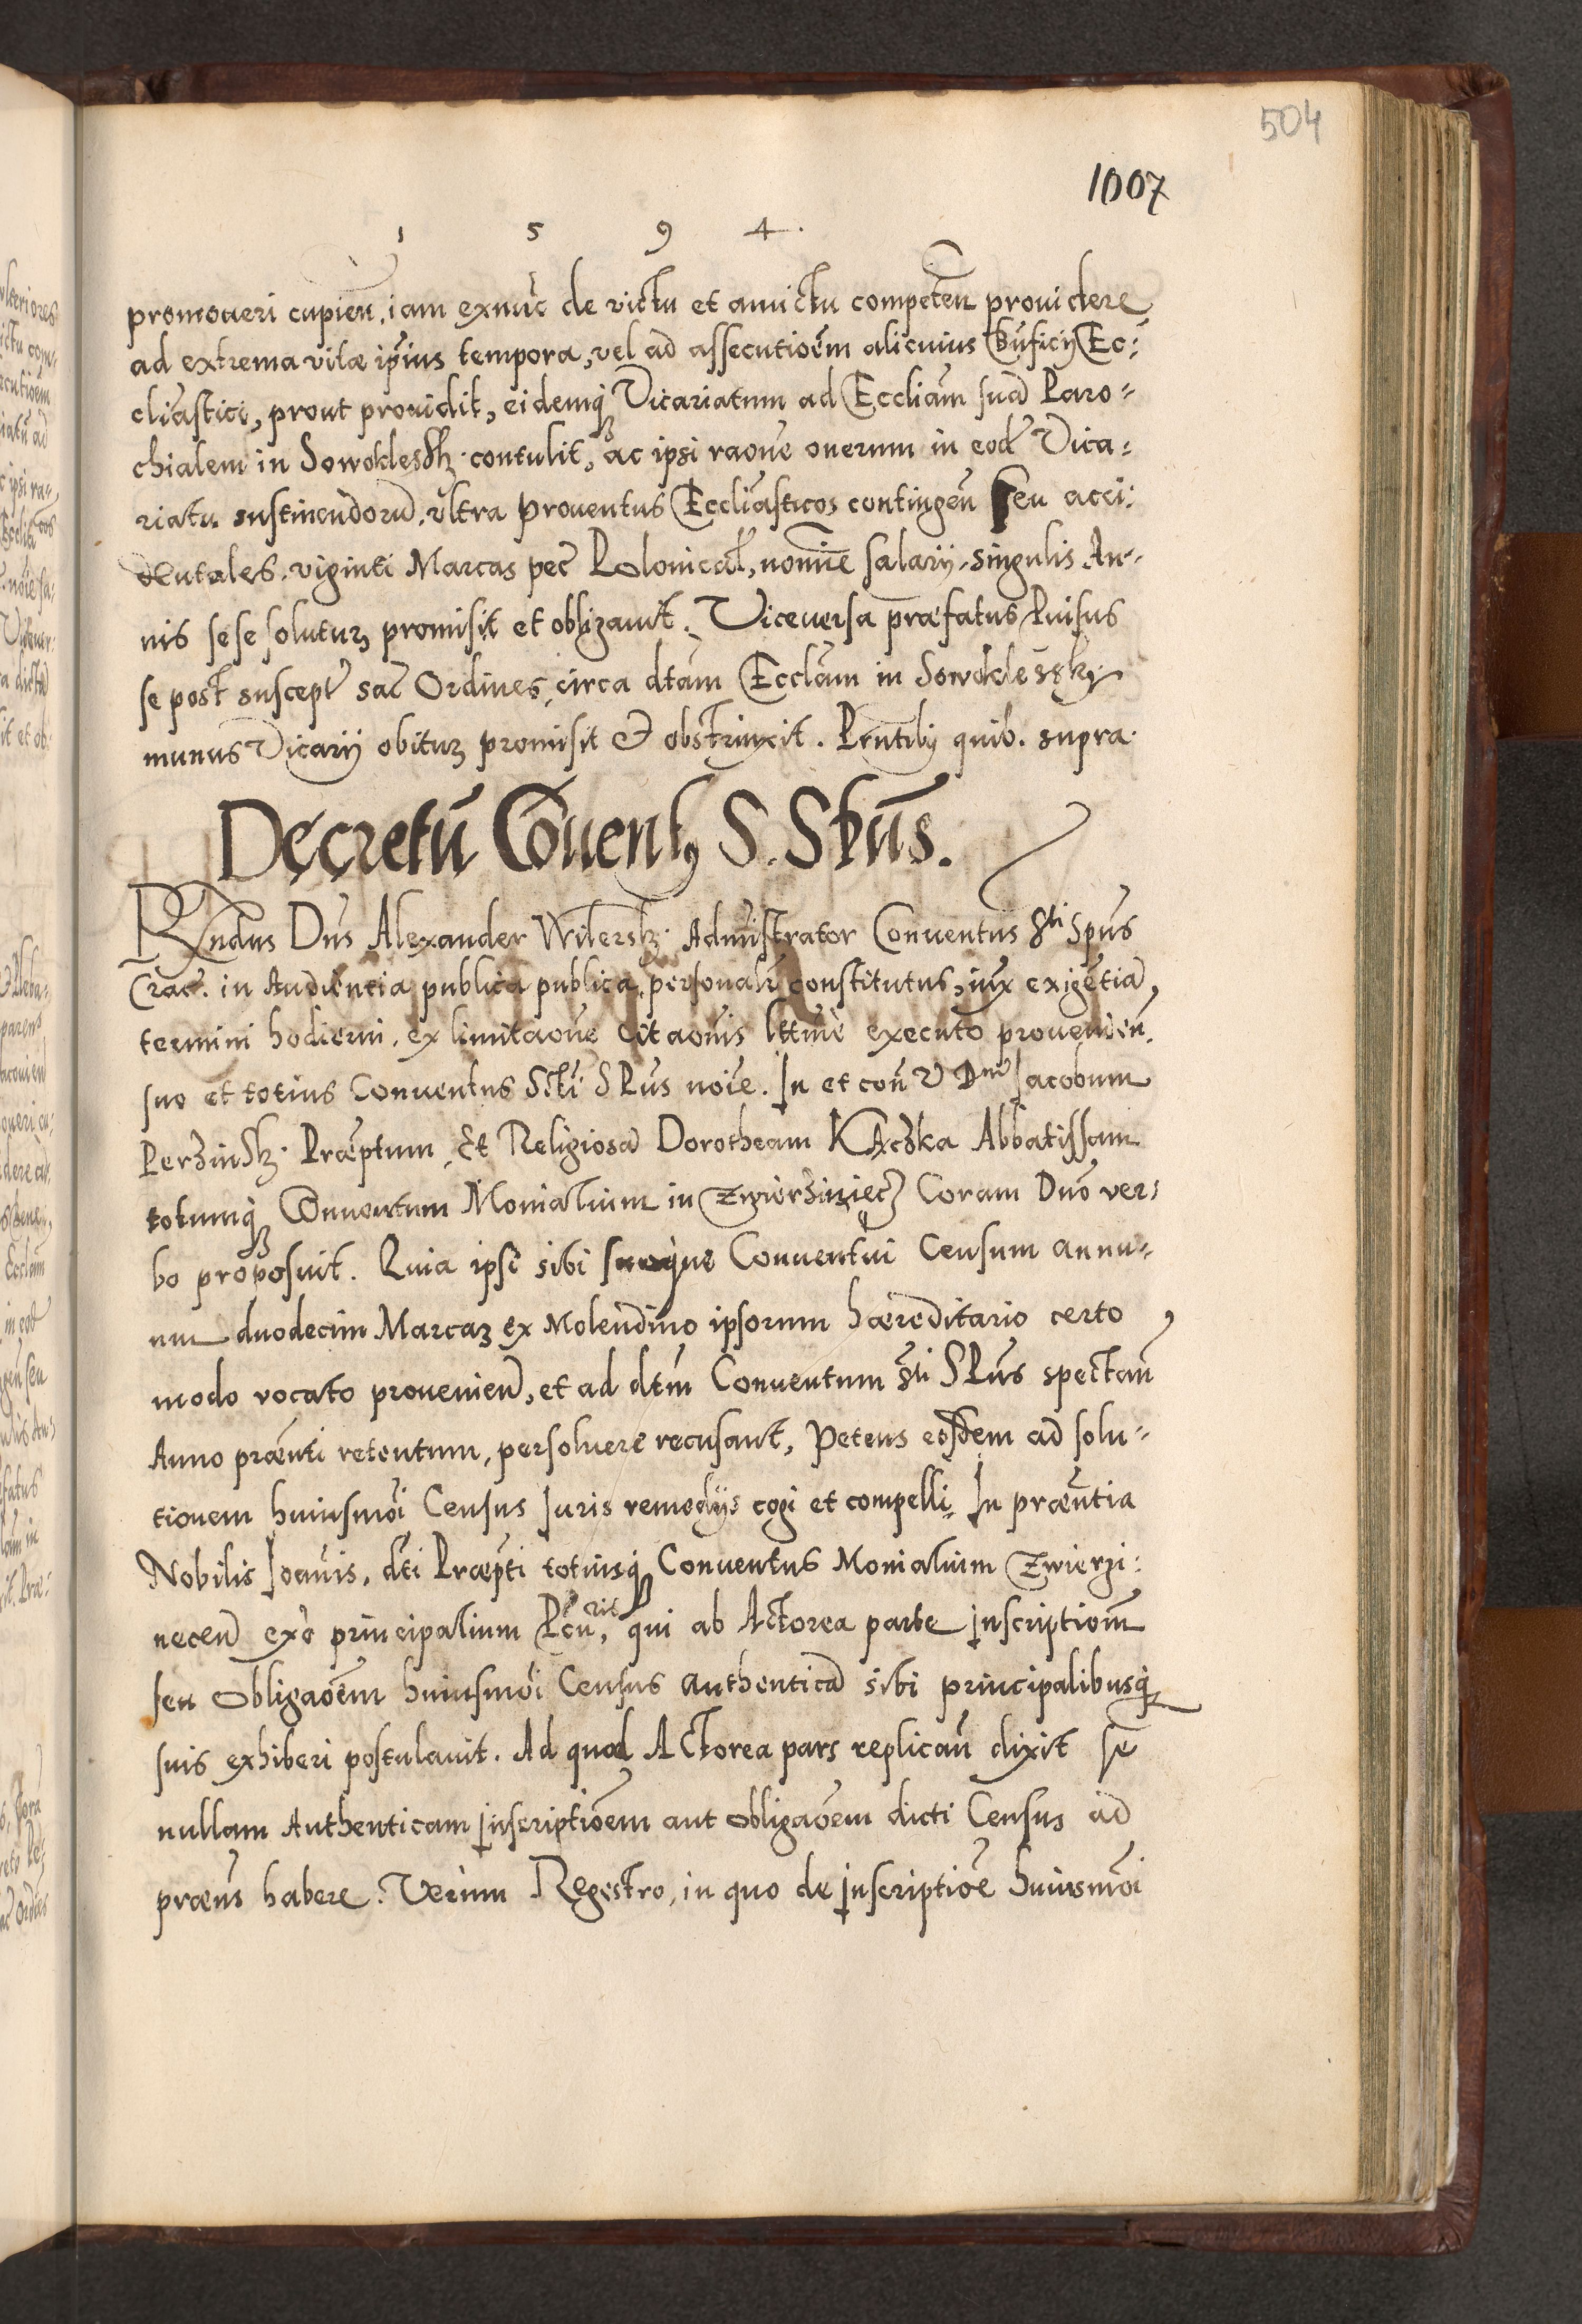 504
1007
1 5 9 4.
promoueri cupień. iam exnūc de victu et amictu competēn prouidere
ad extrema vitæ ip̄ius tempora, vel ad assecutioēm alicuius Būficij Ec:
cliāstici, prout prouidit, eidemq̨ Vicariatum ad Eccliām suā Paro=
chialem in contulit, ac ipsi raōne onerum in eod̄ Vica=
riatu sustinendorū. vltra prouentus Eccliāsticos contingeń seu acci:
dentales. viginti Marcas pec̄ Polonical̄, nomīe salarij. singulis An=
nis sese soluturꝫ promisit et obligauit. Viceuersa præfatus Puisus
se post suscept̄ sac̄ Ordines, circa dtām Ecclām in
munus Vicarij obiturꝫ promisit et obstrinxit. Pn̄tibꝫ quib. supra.
Decretū Cōuentꝰ S. Spūs.
Rn̄dus Dn̄s Alexander Wilersk. Admīstrator Conuentus Sti Spūs
Crac̄. in Audientia publica publica, personalr̄ constitutus, iux exigētiā
termini hodierni. ex limitaōne Citaōnis lr̄ttīne executo prouenień.
suo et totius Conuentus Scti SPūs noīe. In et con̄ V Dnū Jacobum
Perzinsk. Præptum, Et Religiosā Dorotheam Kączka Abbatissam
totumq̨ Conuentum Monialium in Zwierziniec Coram Dno ver=
bo proposuit. Quia ipsi sibi suoque Conuentui Censum annu=
um duodecim Marcaꝫ ex Molendino ipsorum hæreditario certo
modo vocato prouenień, et ad dtm̄ Conuentum Sti SPūs spectań
Anno præn̄ti retentum, persoluere recusant, Petens eosdem ad solu=
tionem huiusmōi Census Iuris remedijs cogi et compelli. In præn̄tia
Nobilis Joānis. dti Præpti totiusq̨ Conuentus Monialium Zwierzi:
neceń ex̄o principalium Pc̄uris, qui ab Actorea parte inscriptionē
seu obligaōēm huiusmōi Census authenticā sibi principalibusq̨
suis exhiberi postulauit. Ad quod Actorea pars replicań dixit se
nullam Authenticam inscriptiōem aut obligaōem dicti Census ad
præns̄ habere. Verum Regestro, in quo de inscriptiōe huiusmōi